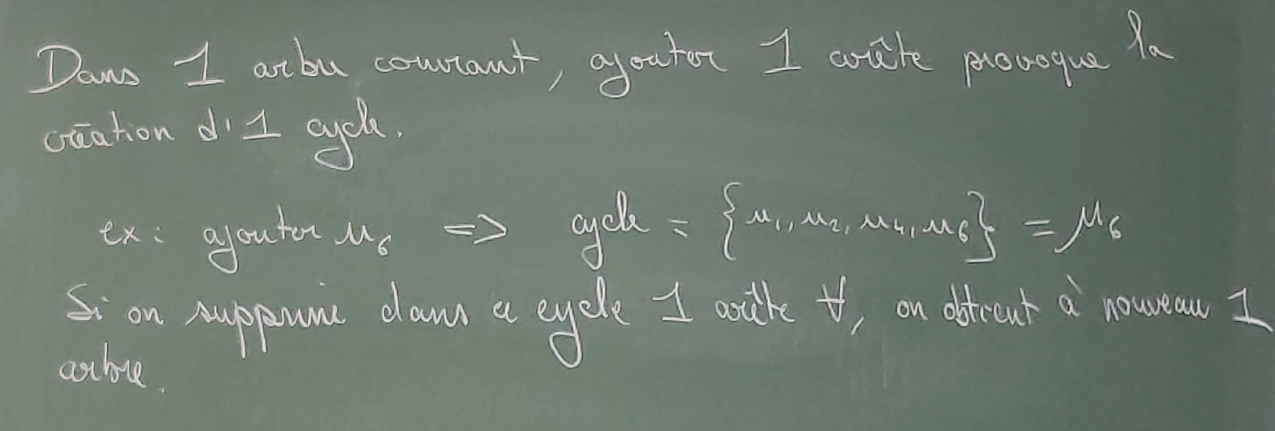 Dans 1 arbre couvrant, ajouter 1 arête provoque la
création d'1 cycle.
ex : ajouter u₆ => cycle = {u₁, u₂, u₄, u₆} = μ₆
Si on supprime dans ce cycle 1 arête ∀, on obtient à nouveau 1
arbre.